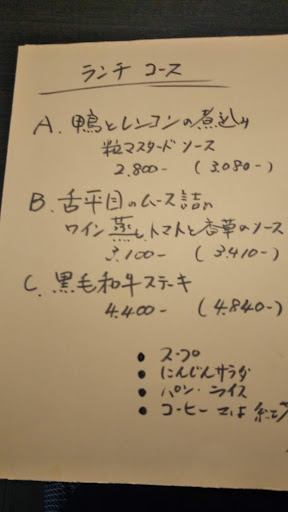 ランチ コース
A. 鴨とレンコンの煮込み
粒マスタード ソース
2.800- (3.080-)
B. 舌平目のムース詰め
ワイン蒸し トマトと香草のソース
3.100- (3.410-)
C. 黒毛和牛ステーキ
4.400- (4.840-)
• スープ
• にんじんサラダ
• パン・ライス
• コーヒー 又は 紅